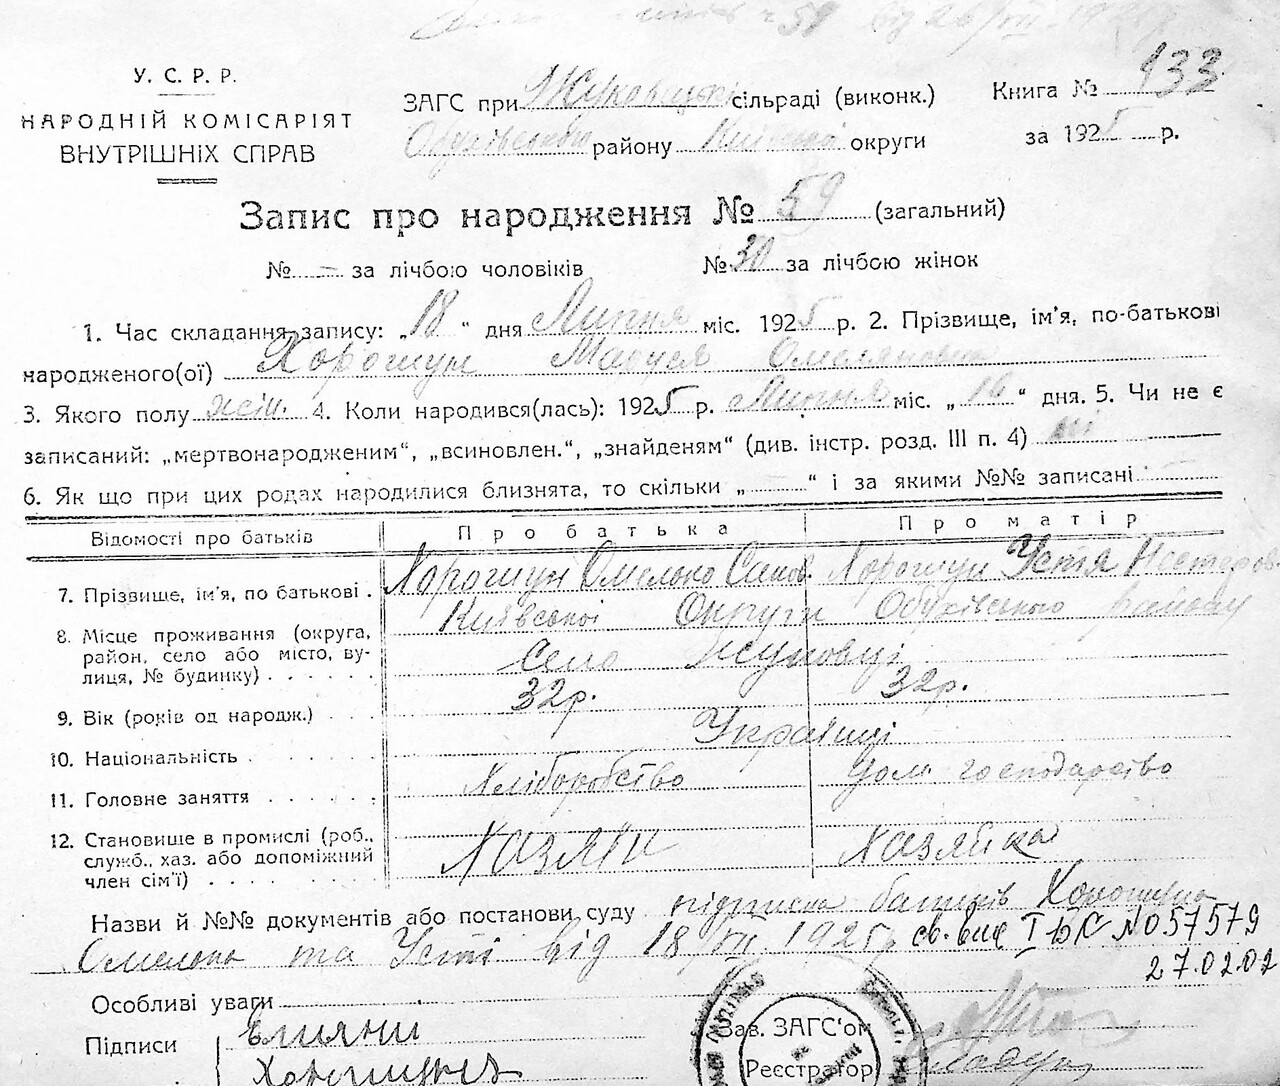 59
У. С. Р. Р.
НАРОДНІЙ КОМІСАРІЯТ
ВНУТРІШНІХ СПРАВ
ЗАГС при сільраді (виконк.)
Обухівському району Київської округи
Книга № 133
за 1925 р.
Запис про народження № 59 (загальний)
№ – за лічбою чоловіків № 30 за лічбою жінок
1. Час складання запису: „18“ дня Липня міс. 1925 р. 2. Прізвище, ім'я, по-батькові
народженого(ої) Хорошун Маруся Омеляновна
3. Якого полу жін. 4. Коли народився(лась): 1925 р. Липня міс. „16“ дня. 5. Чи не є
записаний: „мертвонародженим“, „всиновлен.“, „знайденям“ (див. інстр. розд. III п. 4) ні
6. Як що при цих родах народилися близнята, то скільки „ “ і за якими №№ записані
Відомості про батьків Про батька Про матір
7. Прізвище, ім'я, по батькові . Хорошун Омелько Хорошун Устя Нестеров.
8. Місце проживання (округа, район, село або місто, вулиця, № будинку) Київської Округи Обухівського району
Село Жуковці
9. Вік (років од народж.) . . . 32р. 32р.
10. Національність . . . . . . Українці
11. Головне заняття . . . . . . Хліборобство Дом. господарство
12. Становище в промислі (роб.,
служб., хаз. або допоміжний
член сім'ї) . . . . . . . . Хазяїн Хазяйка
Назви й №№ документів або постанови суду підписка батьків Хорошуна
Омелька та Усті від 18/VII 1925р св. вид І БК №057579
27.02.02
Особливі уваги
Підписи
Зав. ЗАГС'ом
Реєстратор